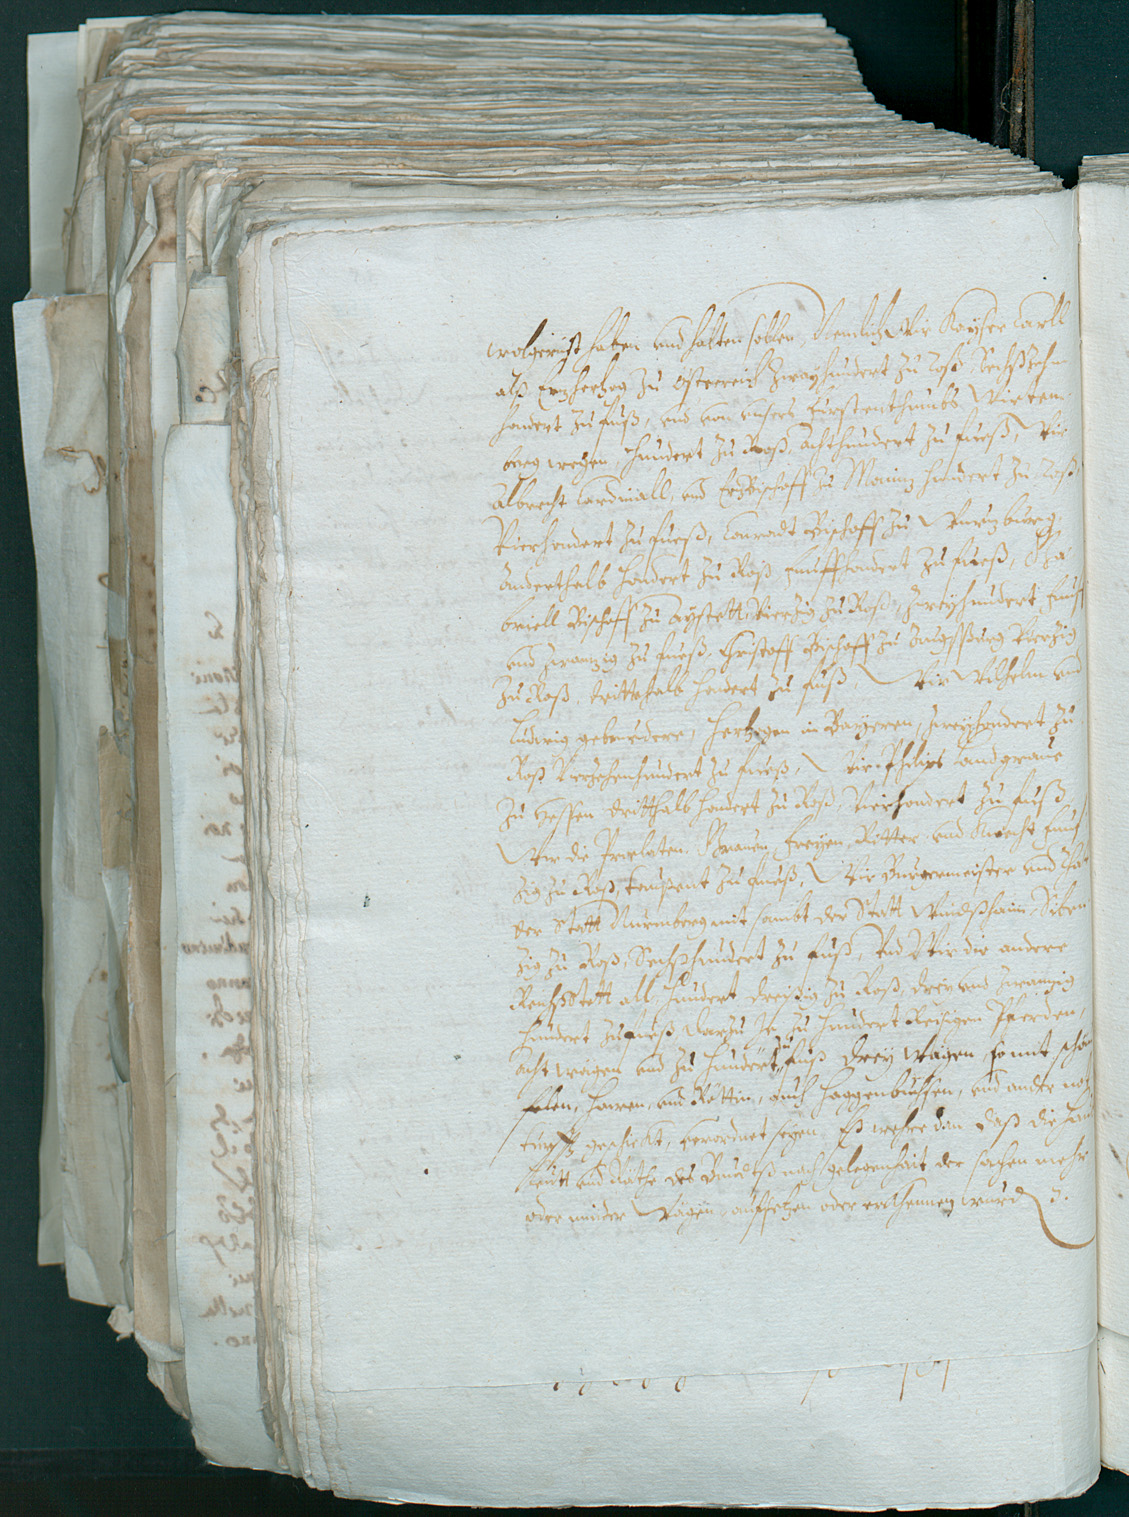 wolgerüst haben und halten sollen, Nemlich Wir Kayser Carll
alß Ertzhertzog zu Österreich zwayhundert zu Roß, Sechßzehn
hondert zu fuß, und von unsers Fürstenthumbs Wirtem-
berg wegen, hundert zu Roß, achthundert zu fueß, Wir
Albrecht Cardinall, und ErtzBischoff zu Maintz hundert zu Roß
Vierhondert zu fueß, Conradt Bischoff zu Wurtzburg
Anderthalb hondert zu Roß, funffhondert zu fueß, Ga-
briell Bischoff zu Aystett, Vierzig zu Roß, zweyhundert funff
und zwantzig zu fueß, Christoff Bischoff zu Augspurg Vierzig
zu Roß, dritthalb hondert zu fuß, Wir Wilhelm und
Ludwig gebruedere, Hertzogen in Bayeren, zweyhondert zu
Roß Vierzehenhundert zu fueß, Wir Philips Landgraue
zu Hessen dritthalb hondert zu Roß, Vierhondert zu fuß
Wir die Praelaten, Grauen, freyen, Ritter und Knecht funff
zig zu Roß, tausent zu fueß, Wir Burgermeister und Rat
der Statt Nurmberg mit sambt der Statt Windßhaim, Siben
zig zu Roß, Sechßhundert zu fuß, Und Wir die andere
ReichsStett all, hundert dreißig zu Roß, drey und zwantzig
hundert zu fueß, darzu Je zu hundert Reisigen Pferden,
acht wägen und zu hundert zu fuß drey Wägen, so mit
hawen, und Kettin, auch haggenbüchsen, und ander
geschickt, verordnet seyen, Eß were dan daß die
leütt und Räthe des Bundtß nach gelegenhait der sachen mehr
oder minder Wägen auffsetzen oder erkhennen wurd